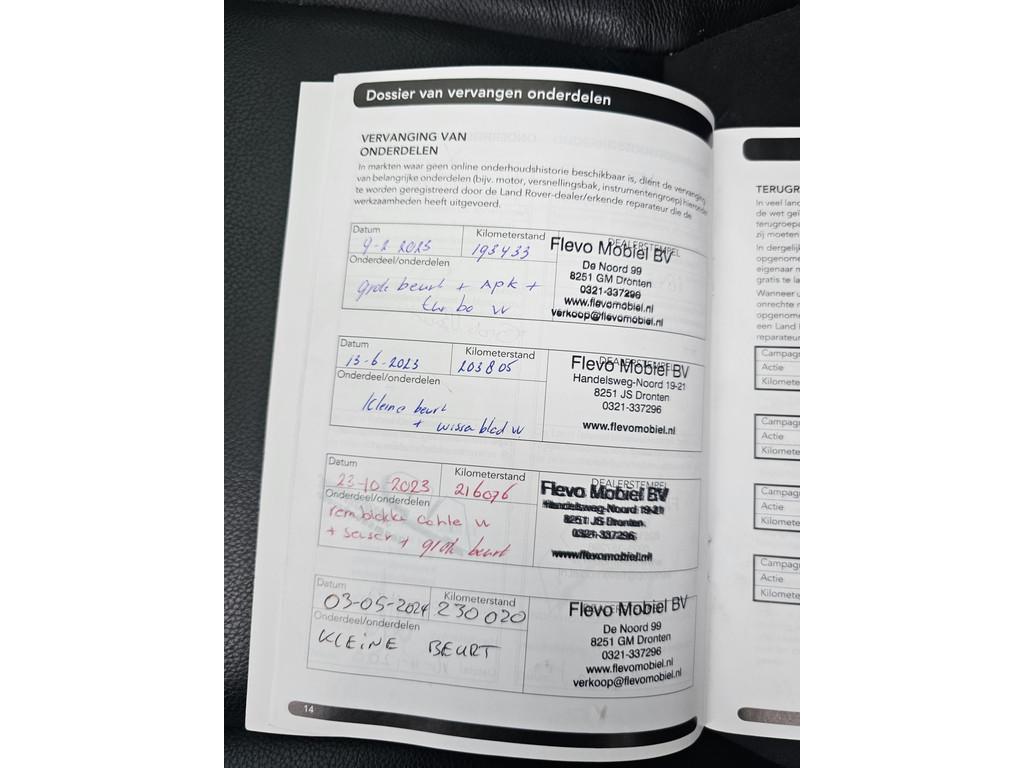 Dossier van vervangen onderdelen
VERVANGING VAN
ONDERDELEN
In markten waar geen online onderhoudshistorie beschikbaar is, dient de vervanging
van belangrijke onderdelen (bijv. motor, versnellingsbak, instrumentengroep) hieronder
te worden geregistreerd door de Land Rover-dealer/erkende reparateur die de
werkzaamheden heeft uitgevoerd.
Datum
9-2 2023
Kilometerstand
193433
Onderdeel/onderdelen
grote beurt + APK +
turbo w
DEALERSTEMPEL
Flevo Mobiel BV
De Noord 99
8251 GM Dronten
0321-337296
www.flevomobiel.nl
verkoop@flevomobiel.nl
Datum
13-6-2023
Kilometerstand
203805
Onderdeel/onderdelen
Kleine beurt
+ wissa blad w
DEALERSTEMPEL
Flevo Mobiel BV
Handelsweg-Noord 19-21
8251 JS Dronten
0321-337296
www.flevomobiel.nl
Datum
23-10-2023
Kilometerstand
216076
Onderdeel/onderdelen
remblokke w
+ + grote beurt
DEALERSTEMPEL
Flevo Mobiel BV
Handelsweg-Noord 19-21
8251 JS Dronten
0321-337296
www.flevomobiel.nl
Datum
03-05-2024
Kilometerstand
230020
Onderdeel/onderdelen
KLEINE BEURT
DEALERSTEMPEL
Flevo Mobiel BV
De Noord 99
8251 GM Dronten
0321-337296
www.flevomobiel.nl
verkoop@flevomobiel.nl
14
TERUGR
In veel land
de wet geï
terugroepa
zij moeten
In dergelij
opgenome
eigenaar m
gratis te la
Wanneer u
onrechte n
opgenome
een Land R
reparateur
Campag
Actie
Kilomete
Campag
Actie
Kilomete
Campag
Actie
Kilomete
Campag
Actie
Kilomete